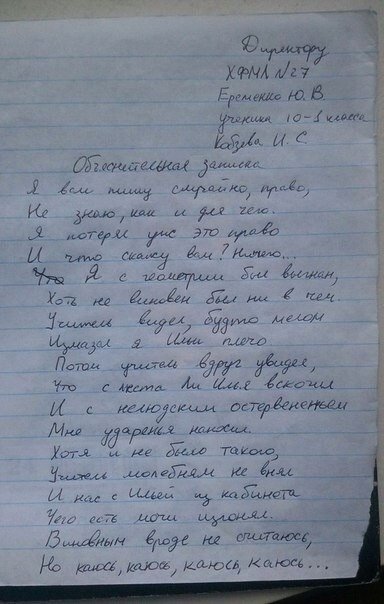 Директору
ХФМЛ №27
Еременко Ю. В.
ученика 10-3 класса
Кобзева И. С.
Объеснительная записка
Я вам пишу случайно, право,
Не знаю, как и для чего.
Я потерял уже это право
И что скажу вам? Ничего...
Что Я с геометрии был выгнан,
Хоть не виновен был ни в чем.
Учитель видел, будто мелом
Измазал я Ильи плечо
Потом учитель вдруг увидел,
Что с места Ли Илья вскочил
И с нелюдским остервененьем
Мне ударенья наносил.
Хотя и не было такого,
Учитель молебням не внял
И нас с Ильей из кабинета
Чего есть мочи изгонял.
Виновным вроде не считаюсь,
Но каюсь, каюсь, каюсь, каюсь...